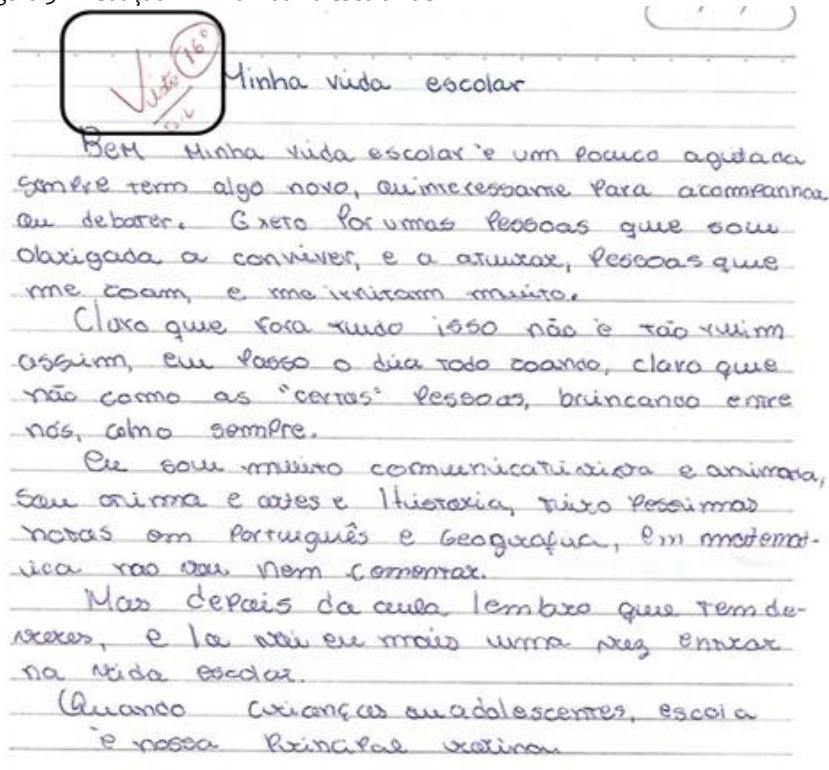 Visto 16º
Minha vida escolar
Bem minha vida escolar é um pouco agitada
sempre tem algo novo, ou interessante para acompanhar
ou debater. Exeto por umas pessoas que sou
obrigada a conviver, e a aturar, pessoas que
me zoam, e me irritam muito.
Claro que fora tudo isso não é tão ruim
assim, eu passo o dia todo zoando, claro que
não como as "certas" pessoas, brincando entre
nós, como sempre.
Eu sou muito comunicativista e animada,
sou otima e artes e History, tiro pessimas
notas em Português e Geografia, em matemat-
ica nao vou nem comentar.
Mas depois da aula lembro que tem de-
veres, e la vai eu mais uma vez entrar
na vida escolar.
Quando crianças ou adolescentes, escola
é nossa principal rotina